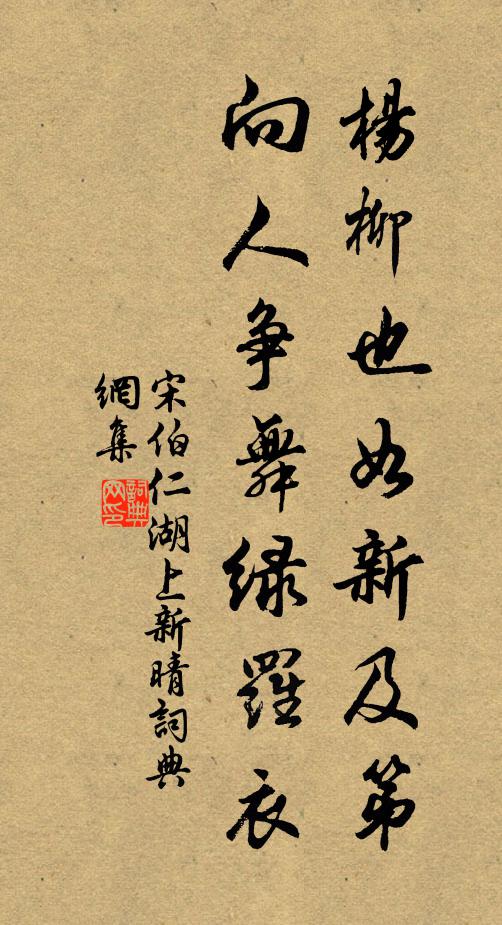 楊柳也如新及第
向人爭舞綠羅衣
宋伯仁湖上新晴詞典
網集
詞典
网印